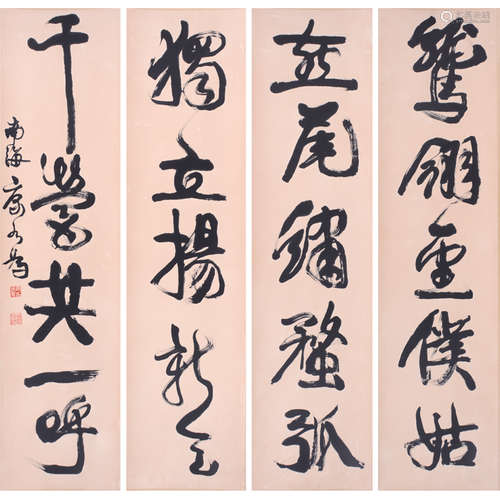 鷲翎金僕姑
燕尾繡蝥弧
獨立揚新令
千營共一呼
南海康有為